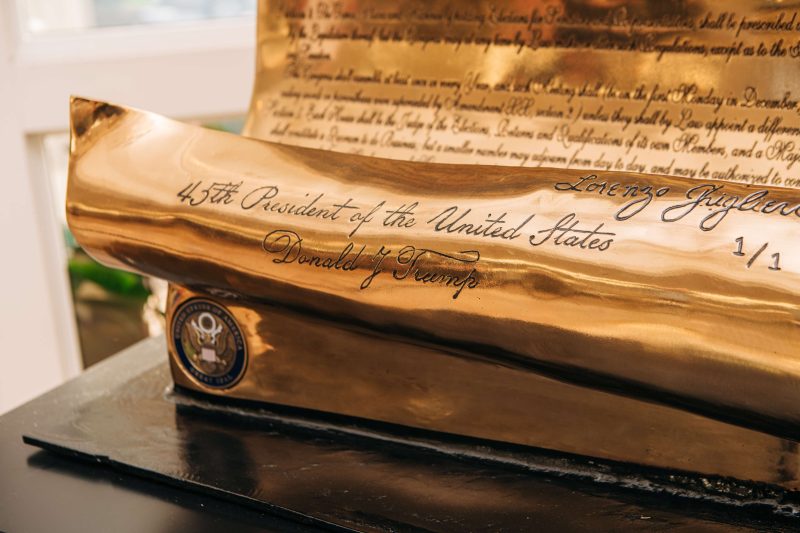 The Times, Places and Manner of holding Elections for Senators and Representatives, shall be prescribed
by the Legislature thereof; but the Congress may at any time by Law make or alter such Regulations, except as to the
The Congress shall assemble at least once in every Year, and such Meeting shall (be on the first Monday in December
were superseded by Amendment XX, section 2) unless they shall by Law appoint a
Section 5. Each House shall be the Judge of the Elections, Returns and Qualifications of its own Members, and a
shall constitute a Quorum to do Business; but a smaller number may adjourn from day to day, and may be authorized to
Lorenzo
45th President of the United States
1/1
Donald J Trump